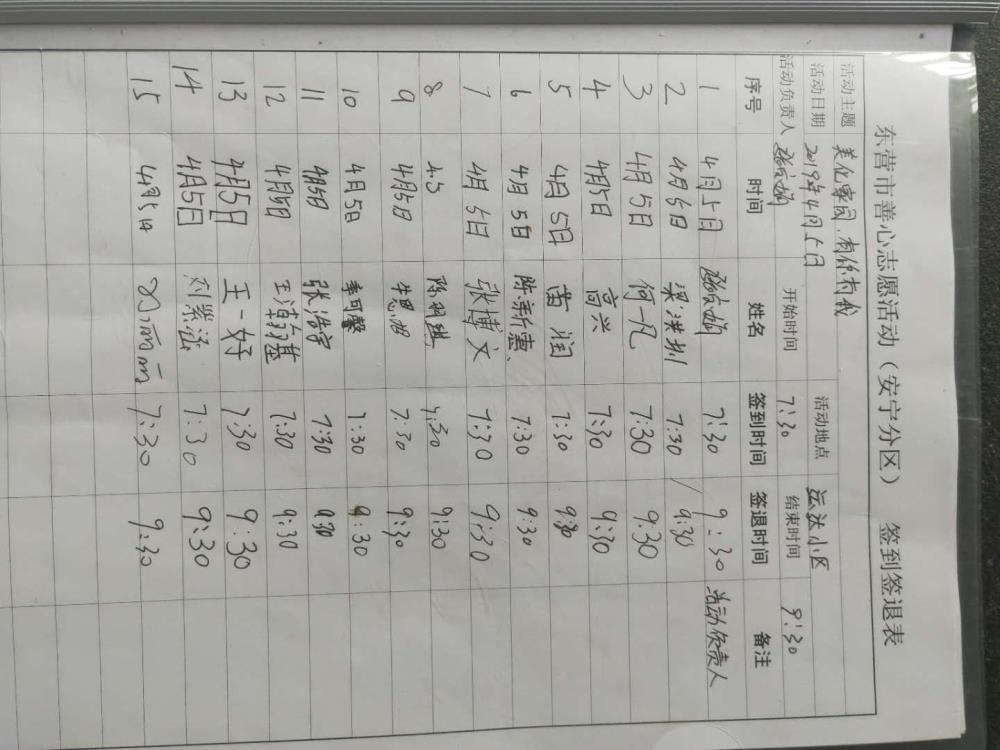 东营市善心志愿活动（安宁分区） 签到签退表
活动主题 美化家园，有你有我 活动地点 运法小区
活动日期 2019年4月5日 开始时间 7:30 结束时间 9:30
活动负责人
序号 时间 姓名 签到时间 签退时间 备注
1 4月5日 7:30 9:30 活动负责人
2 4月5日 梁洪圳 7:30 9:30
3 4月5日 何一凡 7:30 9:30
4 4月5日 高兴 7:30 9:30
5 4月5日 苗润 7:30 9:30
6 4月5日 陈新惠 7:30 9:30
7 4月5日 张博文 7:30 9:30
8 4.5 7:30 9:30
9 4月5日 7:30 9:30
10 4月5日 李可馨 7:30 9:30
11 4月5日 张浩宇 7:30 9:30
12 4月5日 王瀚基 7:30 9:30
13 4月5日 王一好 7:30 9:30
14 4月5日 刘 涵 7:30 9:30
15 4月5日 丽丽 7:30 9:30